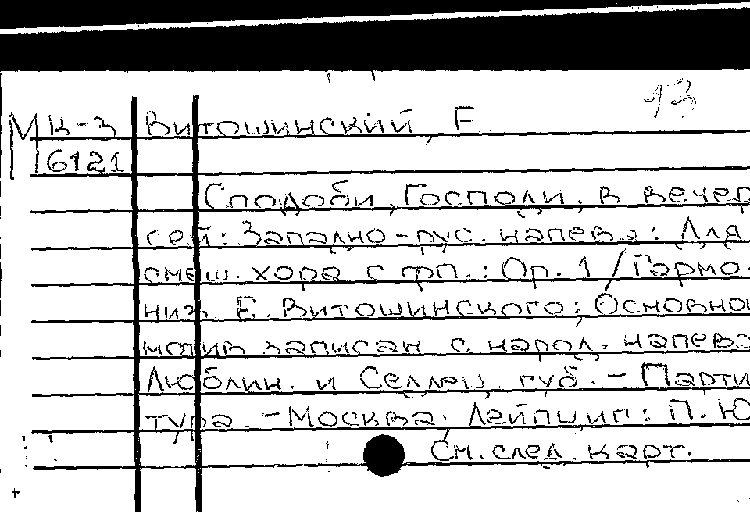 13
МК-3 Витошинский, Е
16121
Сподоби, Господи, в вечер
сей: Западно-рус. напева: Для
смеш. хора с фп.: Ор. 1 / Гармо-
низ. Е. Витошинского; Основной
мотив записан с народ. напева
Люблин. и Седлец. губ. - Парти
тура. - Москва; Лейпциг: П. Ю
См. след. карт.